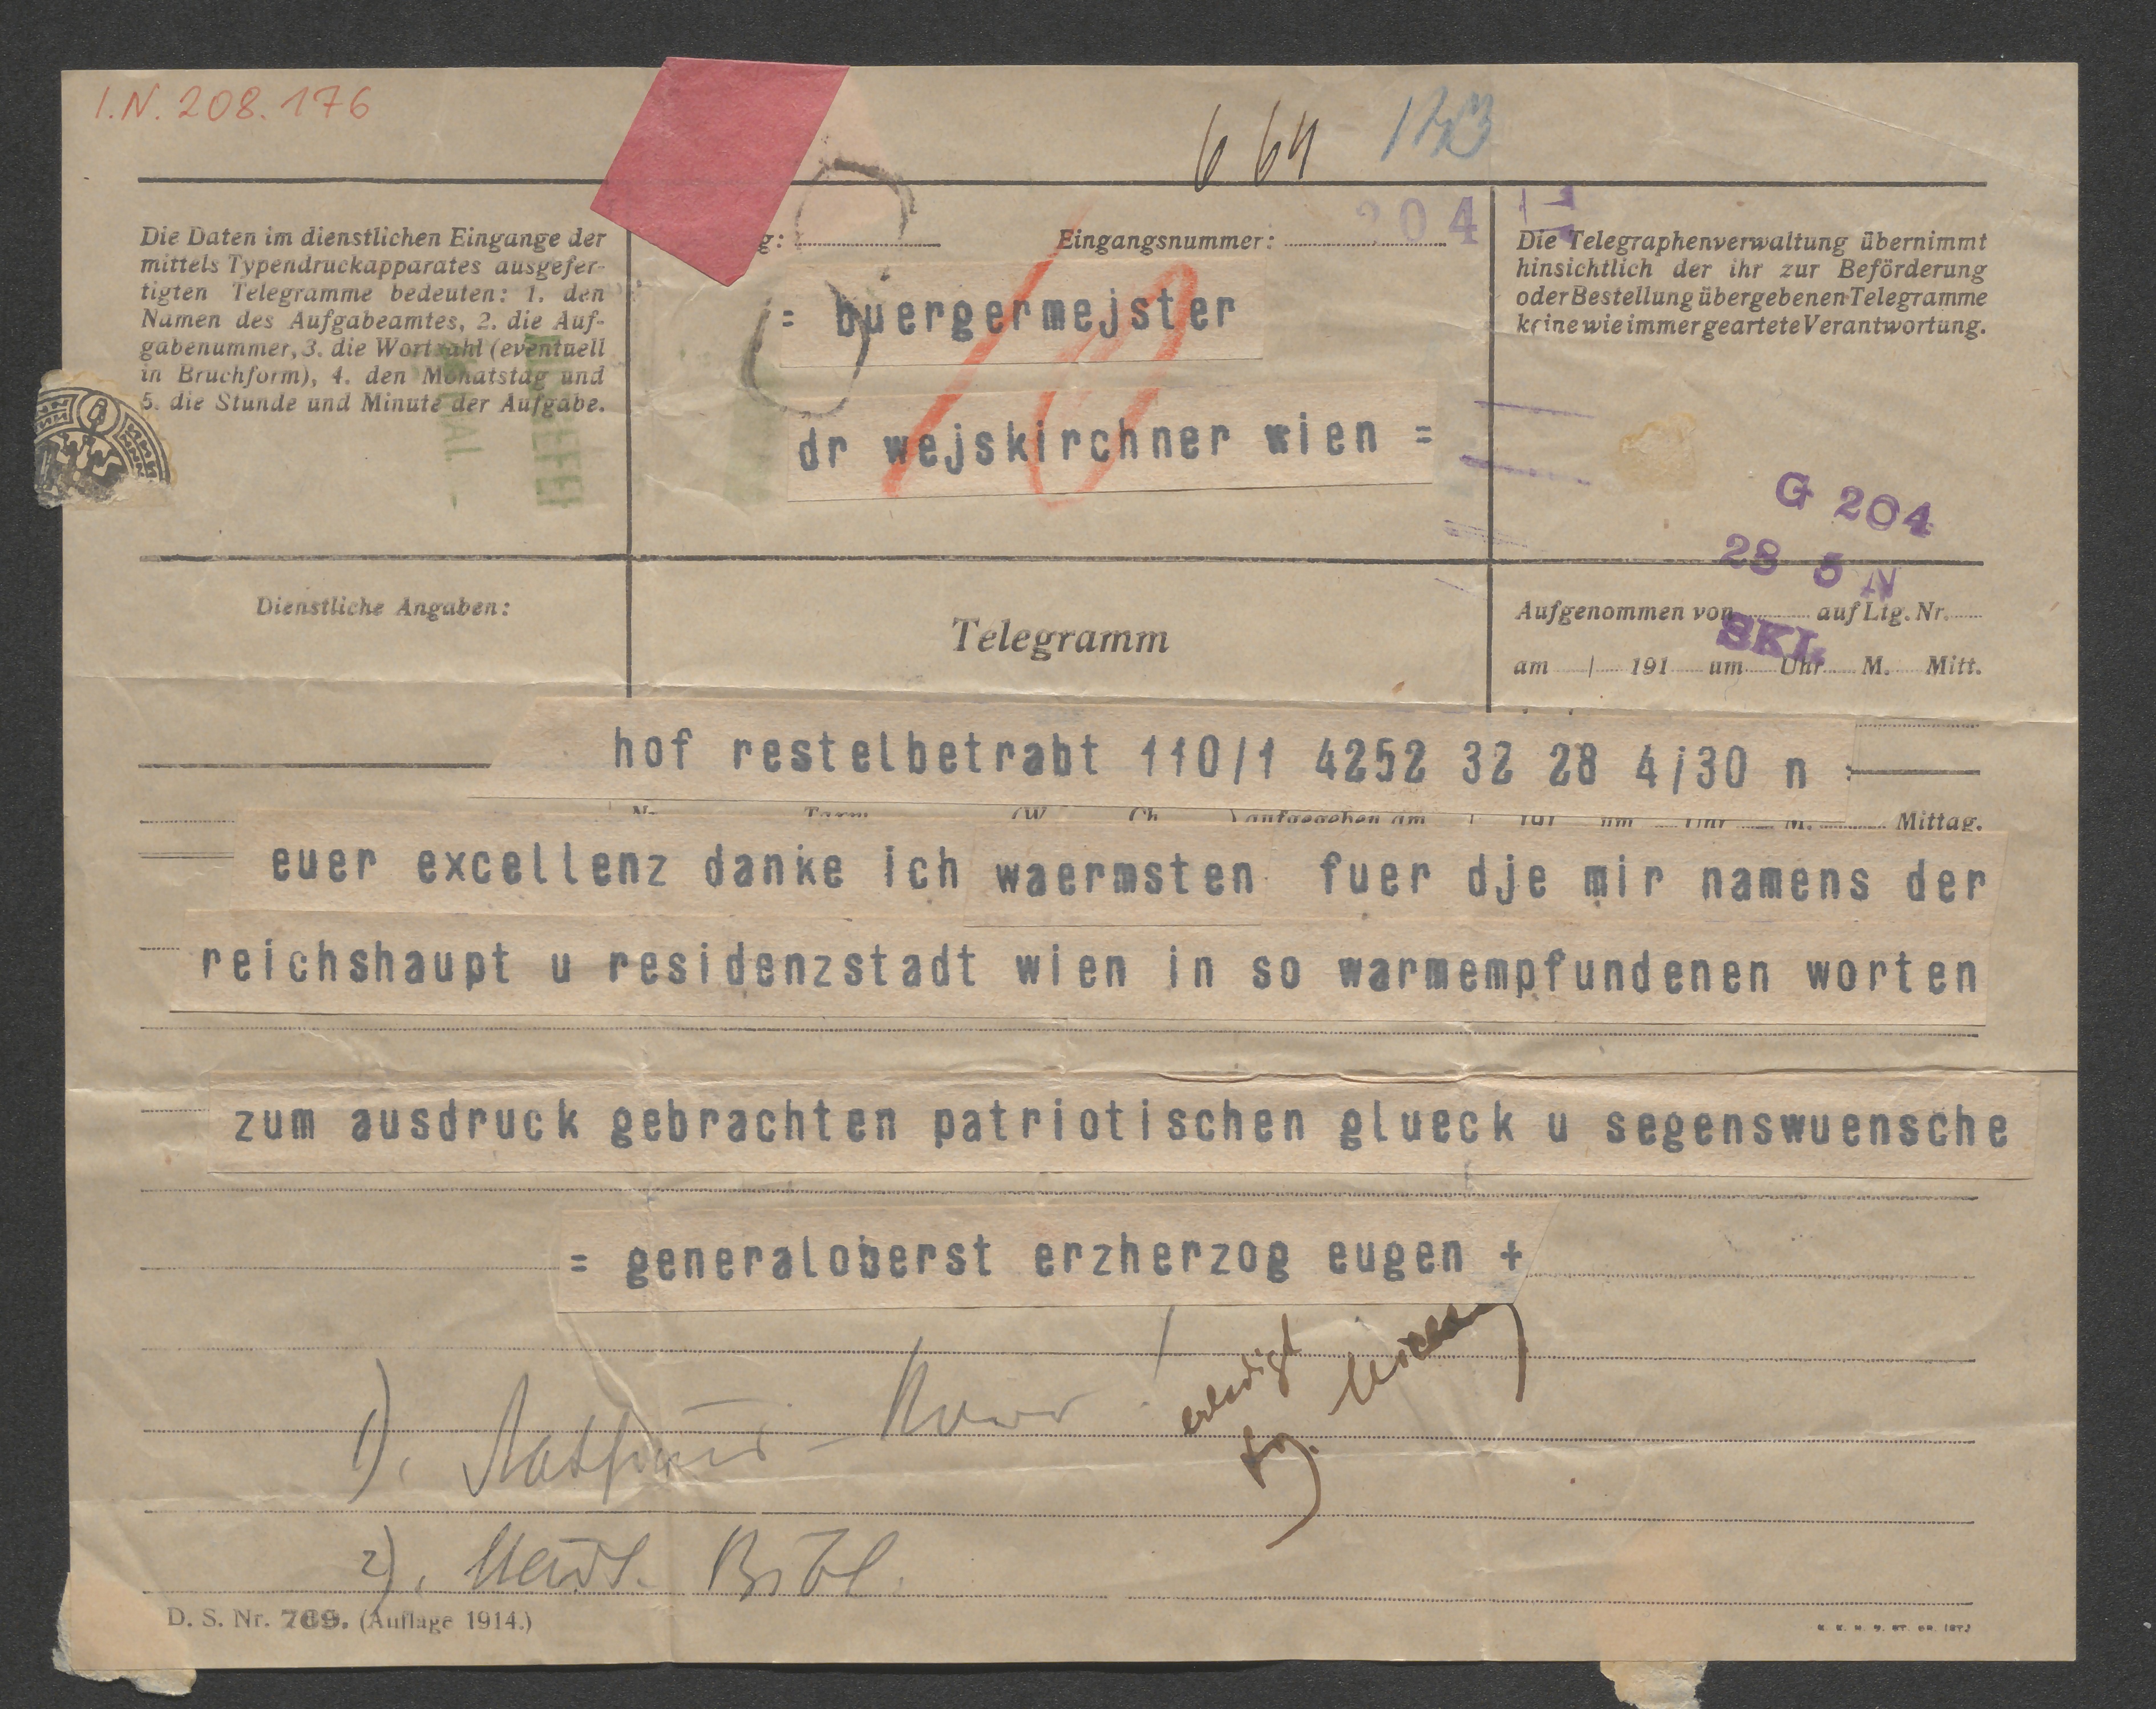 I.N. 208.176
6 64
Die Daten im dienstlichen Eingange der
mittels Typendruckapparates ausgefer-
tigten Telegramme bedeuten: 1. den
Namen des Aufgabeamtes, 2. die Auf-
gabenummer, 3. die Wortzahl (eventuell
in Bruchform), 4. den Monatstag und
5. die Stunde und Minute der Aufgabe.
Eingangsnummer: 204
= buergermejster
10
dr wejskirchner wien =
Die Telegraphenverwaltung übernimmt
hinsichtlich der ihr zur Beförderung
oder Bestellung übergebenen Telegramme
keine wie immer geartete Verantwortung.
G 204
28 5 N
SKL
Dienstliche Angaben:
Telegramm
Aufgenommen von auf Ltg. Nr.
am / 191 um Uhr M. Mitt.
hof restelbetrabt 110/1 4252 32 28 4/30 n =
aufgegeben am 191 um Uhr M. Mittag.
euer excellenz danke ich waermsten fuer dje mir namens der
reichshaupt u residenzstadt wien in so warmempfundenen worten
zum ausdruck gebrachten patriotischen glueck u segenswuensche
= generaloberst erzherzog eugen +
erledigt
1). Rathaus-Korr!
2). Städt. Bibl.
D. S. Nr. 769. (Auflage 1914.)